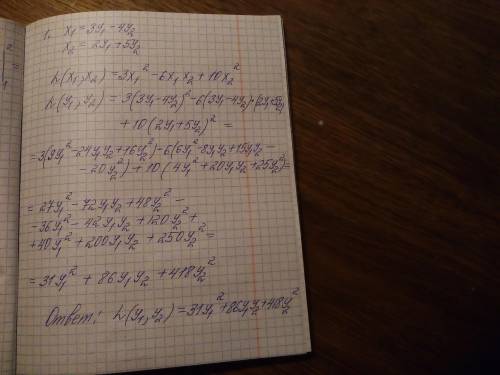 1. x₁ = 3y₁ - 4y₂
x₂ = 2y₁ + 5y₂
L(x₁; x₂) = 3x₁² - 6x₁x₂ + 10x₂²
L(y₁, y₂) = 3(3y₁ - 4y₂)² - 6(3y₁ - 4y₂)·(2y₁+5y₂)
+ 10(2y₁ + 5y₂)² =
= 3(9y₁² - 24y₁y₂ + 16y₂²) - 6(6y₁² - 8y₁y₂ + 15y₁y₂ -
- 20y₂²) + 10(4y₁² + 20y₁y₂ + 25y₂²) =
= 27y₁² - 72y₁y₂ + 48y₂² -
- 36y₁² - 42y₁y₂ + 120y₂² +
+ 40y₁² + 200y₁y₂ + 250y₂² =
= 31y₁² + 86y₁y₂ + 418y₂²
Ответ: L(y₁, y₂) = 31y₁² + 86y₁y₂ + 418y₂²